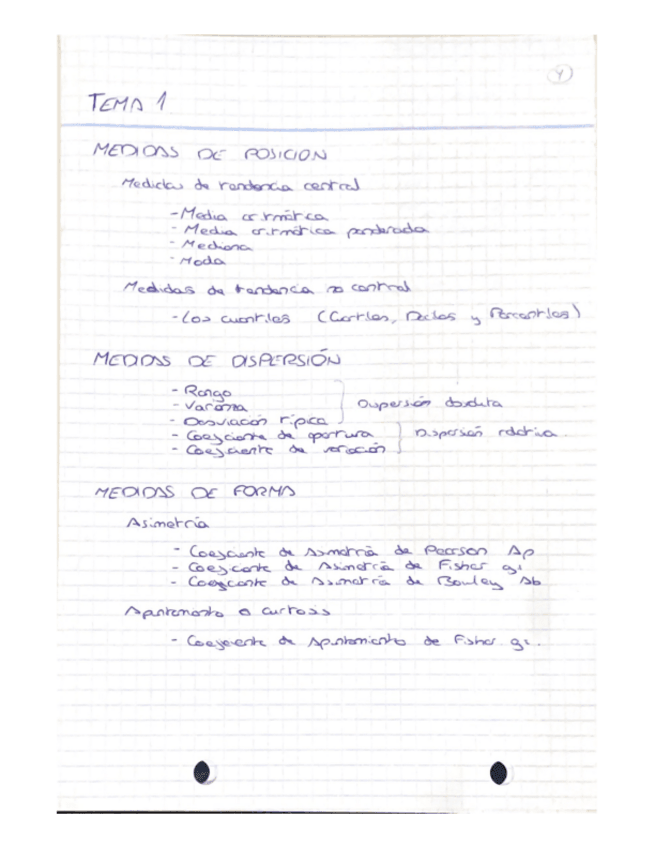 1
TEMA 1
MEDIDAS DE POSICION
Medidas de tendencia central
- Media aritmética
- Media aritmética ponderada
- Mediana
- Moda
Medidas de tendencia no central
- Los cuantiles (Cuartiles, Deciles y Percentiles)
MEDIDAS DE DISPERSIÓN
- Rango
- Varianza
Dispersión absoluta
- Desviación típica
- Coeficiente de apertura
Dispersión relativa.
- Coeficiente de variación
MEDIDAS DE FORMA
Asimetría
- Coeficiente de Asimetría de Pearson Ap
- Coeficiente de Asimetría de Fisher g1
- Coeficiente de Asimetría de Bowley Ab
Apuntamiento o curtosis
- Coeficiente de Apuntamiento de Fisher g2.